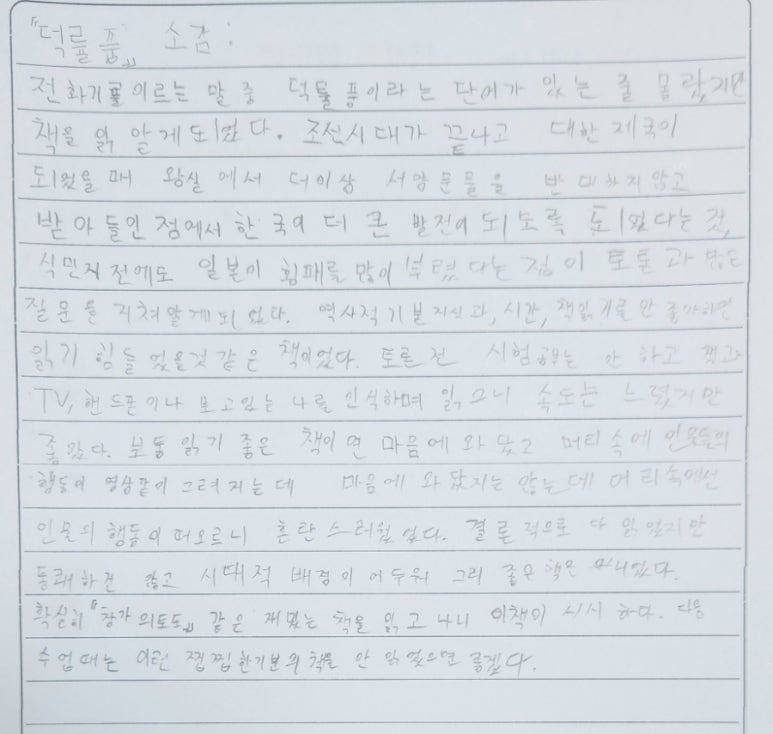 『덕률풍』 소감:
전화기를 이르는 말 중 덕률풍이라는 단어가 있는 줄 몰랐지만
책을 읽 알게 되었다. 조선시대가 끝나고 대한제국이
되었을 때 왕실에서 더이상 서양문물을 반대하지 않고
받아들인 점에서 한국의 더 큰 발전이 되도록 되었다는 것,
식민지 전에도 일본이 횡패를 많이 부렸다는 점이 토론과 많은
질문을 거쳐 알게 되었다. 역사적 기본지식과, 시간, 책읽기를 안 좋아하면
읽기 힘들었을것 같은 책이었다. 토론 전 시험공부는 안 하고
TV, 핸드폰이나 보고있는 나를 인식하며 읽으니 속도는 느렸지만
좋았다. 보통 읽기 좋은 책이면 마음에 와 닿고 머리속에 인물들의
행동이 영상같이 그려지는데 마음에 와 닿지는 않는데 머리속에선
인물의 행동이 떠오르니 혼란스러웠었다. 결론적으로 다 읽었지만
통쾌하진 않고 시대적 배경의 어두워 그리 좋은 책은 아니었다.
확실히 『창가의토토』 같은 재밌는 책을 읽고 나니 이책이 시시하다. 다음
수업때는 이런 찝찝한기분의 책을 안 읽었으면 좋겠다.